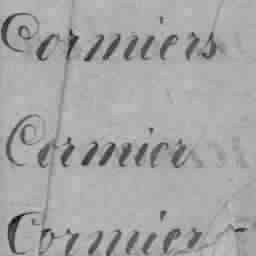 Cormiers
Cormier
Cormier